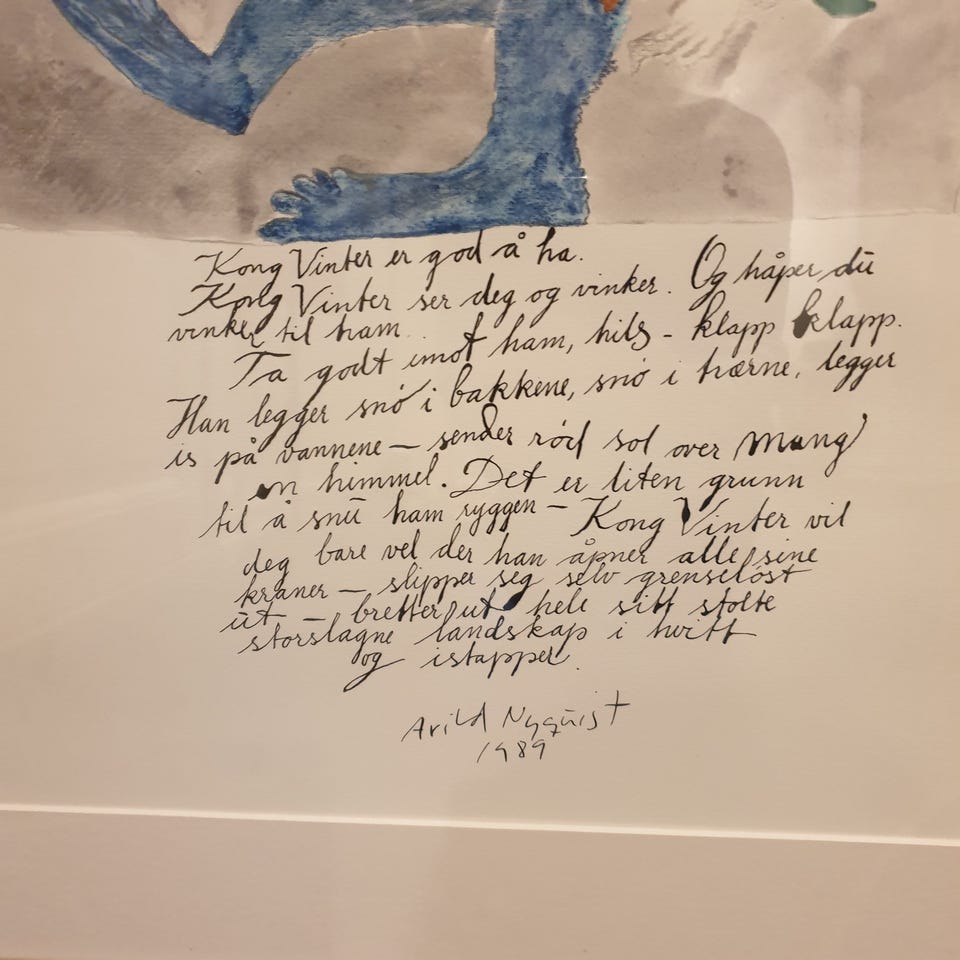 Kong Vinter er god å ha.
Kong Vinter ser deg og vinker. Og håper du
vinker til ham.
Ta godt imot ham, hils - klapp klapp.
Han legger snö i bakkene, snö i trærne, legger
is på vannene — sender röd sol over mang
en himmel. Det er liten grunn
til å snu ham ryggen — Kong Vinter vil
deg bare vel der han åpner alle sine
kraner — slipper seg selv grenselöst
ut — bretter ut hele sitt stolte
storslagne landskap i hvitt
og istapper.
Arild Nyquist
1989